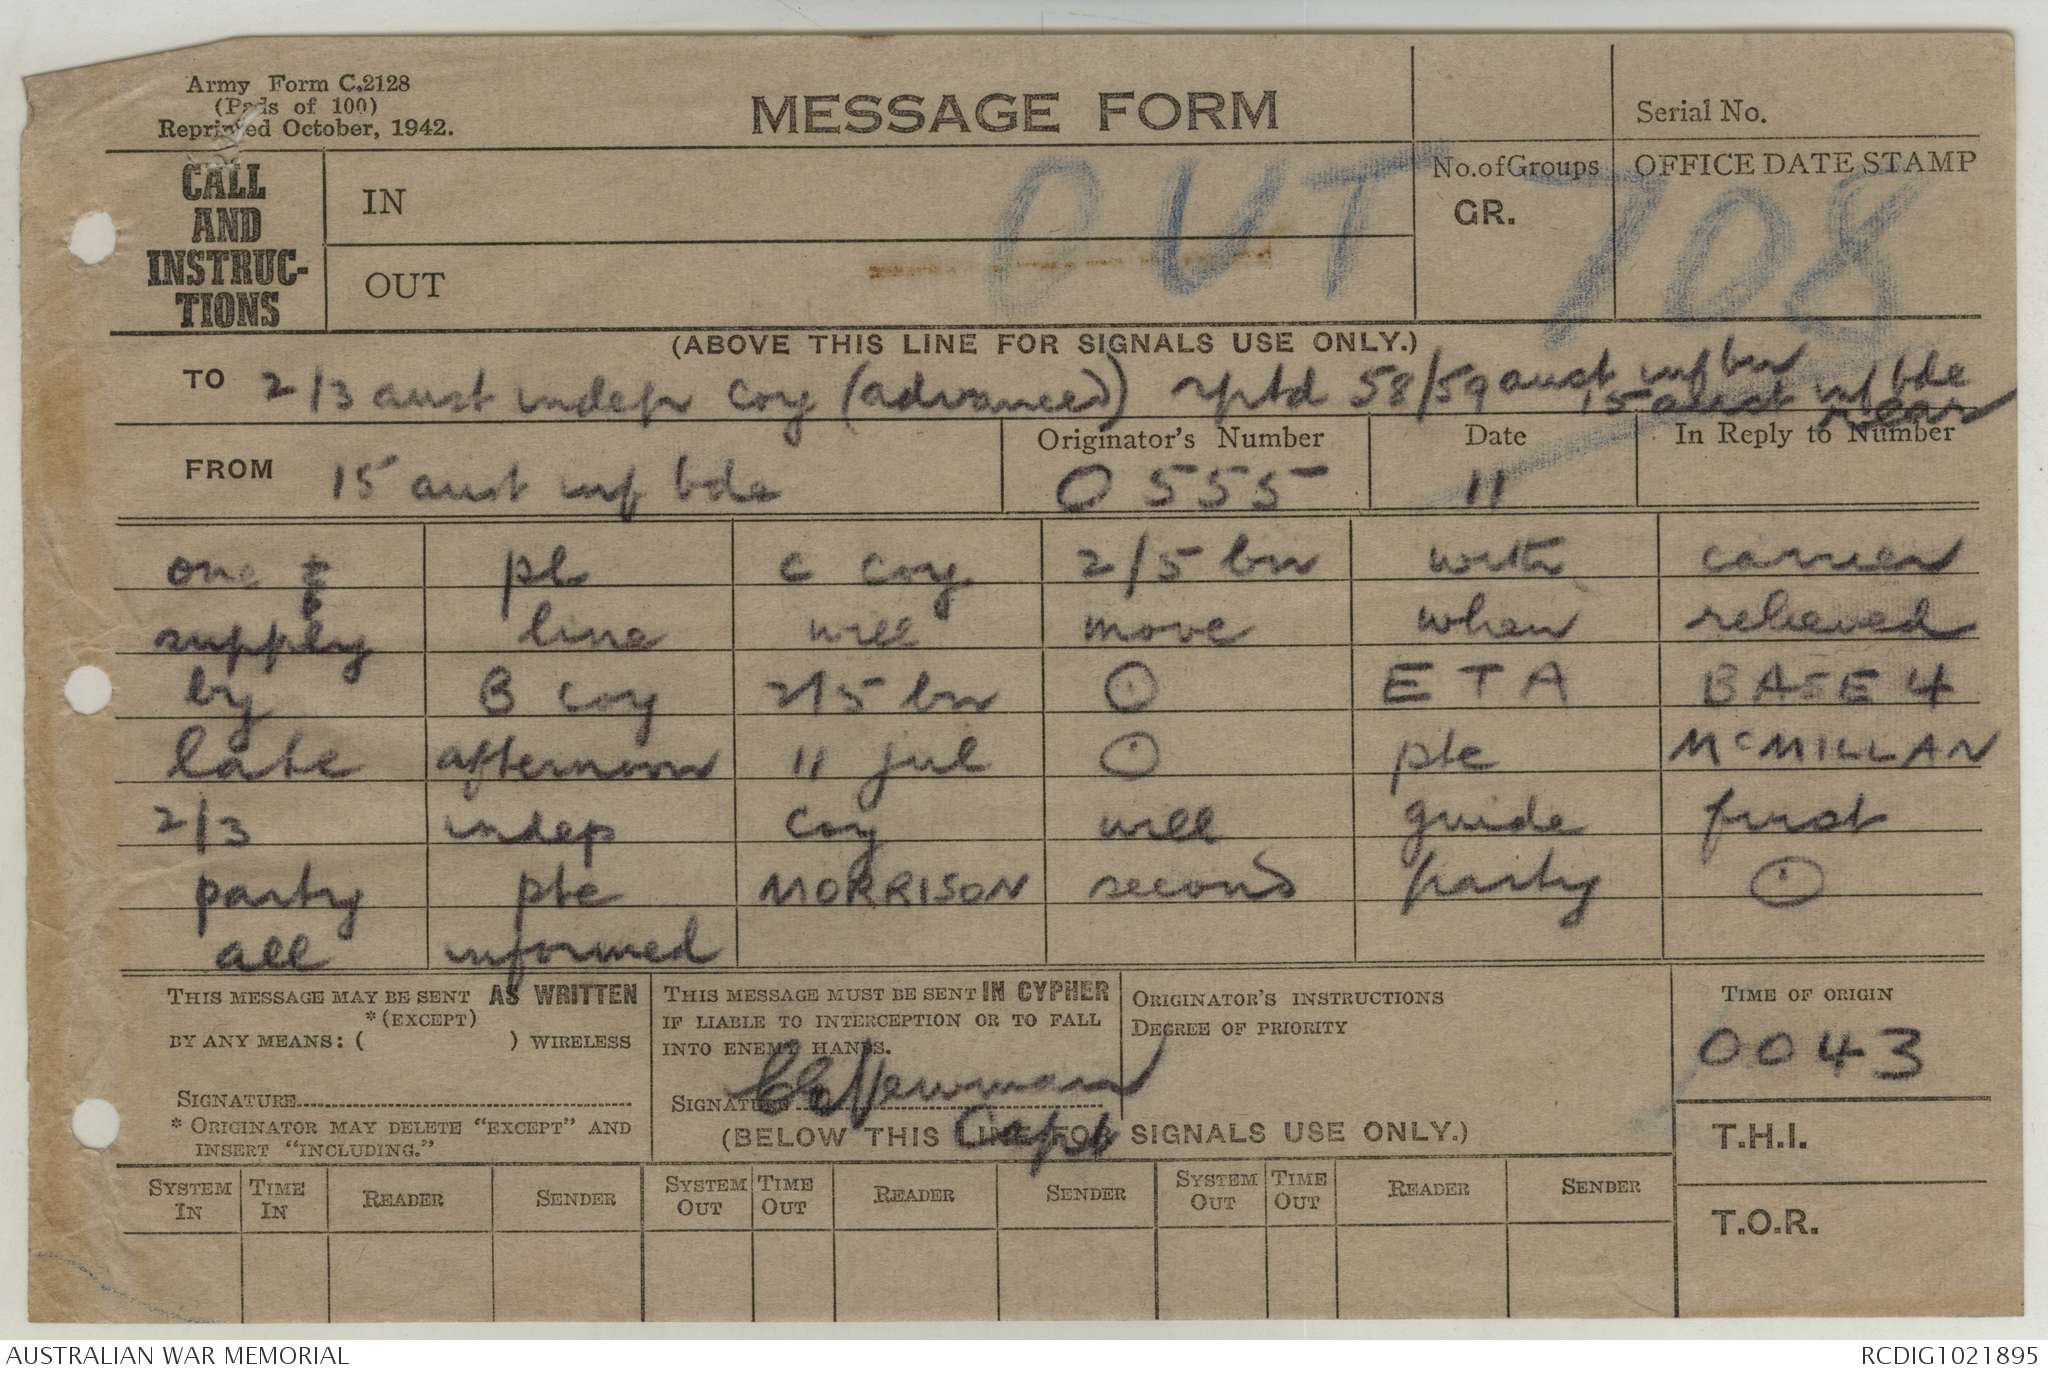 Army Form C.2128
(Pads of 100)
Reprinted October, 1942.
MESSAGE FORM
Serial No.
CALL AND INSTRUC-TIONS
IN
OUT
OUT
No. of Groups
GR.
OFFICE DATE STAMP
708
(ABOVE THIS LINE FOR SIGNALS USE ONLY.)
TO 2/3 aust indep coy (advanced) rptd 58/59 aust inf bn
15 aust inf bde rear
FROM 15 aust inf bde
Originator's Number 0555
Date 11
In Reply to Number
one pl c coy 2/5 bn with carrier
supply line will move when relieved
by B coy 2/5 bn ⊙ ETA BASE 4
late afternoon 11 jul ⊙ pte McMILLAN
2/3 indep coy will guide first
party pte MORRISON second party ⊙
all informed
THIS MESSAGE MAY BE SENT AS WRITTEN
*(EXCEPT)
BY ANY MEANS: ( ) WIRELESS
SIGNATURE
* ORIGINATOR MAY DELETE "EXCEPT" AND
INSERT "INCLUDING."
THIS MESSAGE MUST BE SENT IN CYPHER
IF LIABLE TO INTERCEPTION OR TO FALL
INTO ENEMY HANDS.
SIGNATURE Newman
Capt
ORIGINATOR'S INSTRUCTIONS
DEGREE OF PRIORITY
TIME OF ORIGIN
0043
T.H.I.
T.O.R.
(BELOW THIS LINE FOR SIGNALS USE ONLY.)
SYSTEM IN TIME IN READER SENDER SYSTEM OUT TIME OUT READER SENDER SYSTEM OUT TIME OUT READER SENDER
AUSTRALIAN WAR MEMORIAL
RCDIG1021895